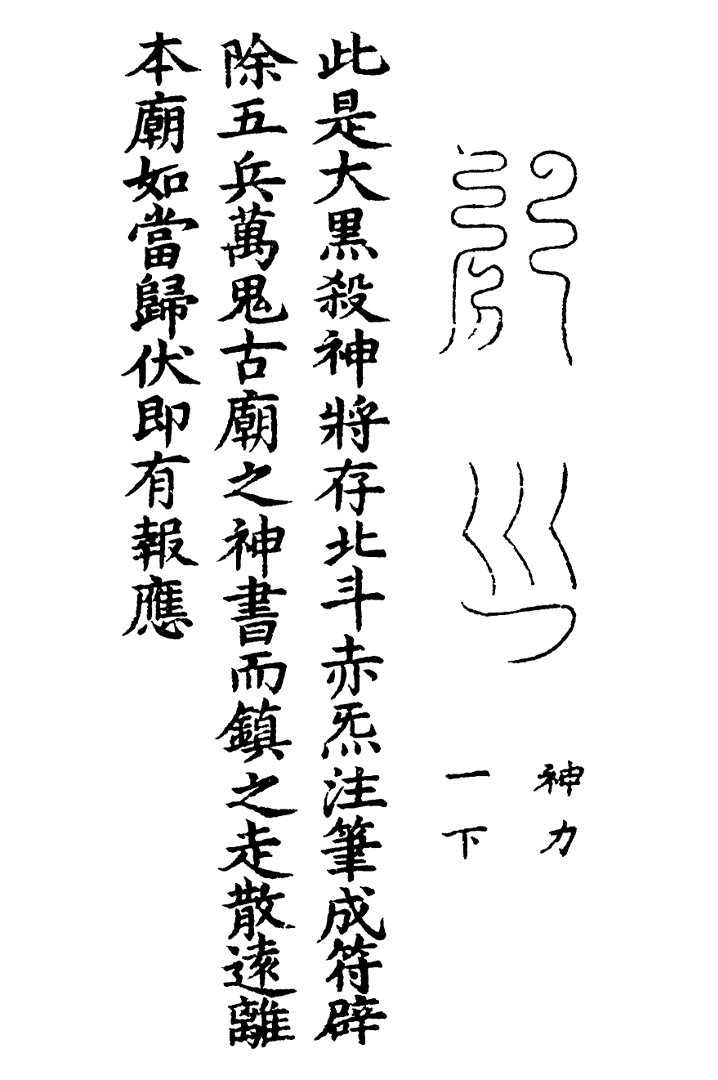 神力
一下
此是大黑殺神將存北斗赤炁注筆成符辟
除五兵萬鬼古廟之神書而鎮之走散遠離
本廟如當歸伏即有報應